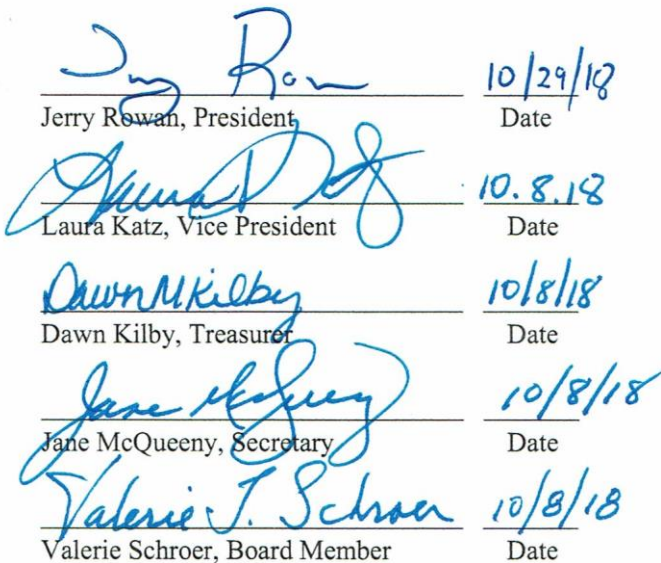 Jerry Rowan 10/29/18
Jerry Rowan, President Date
Laura D Katz 10.8.18
Laura Katz, Vice President Date
Dawn M Kilby 10/8/18
Dawn Kilby, Treasurer Date
Jane McQueeny 10/8/18
Jane McQueeny, Secretary Date
Valerie J. Schroer 10/8/18
Valerie Schroer, Board Member Date